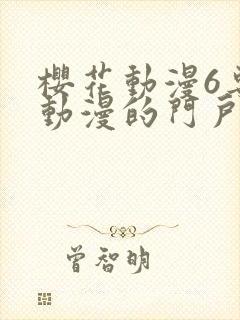 櫻花動漫6
動漫的門戶
曾智明